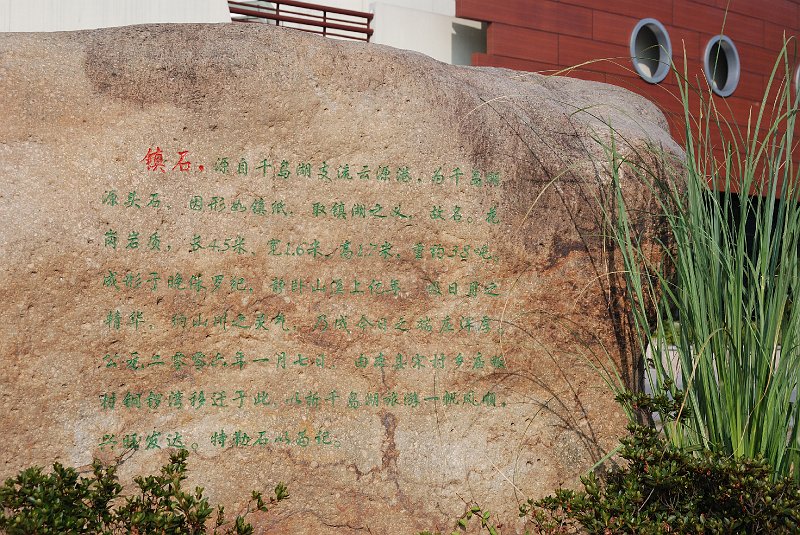 镇石，源自千岛湖支流云源港，为千岛湖
源头石，因形如镇纸，取镇湖之义，故名。花
岗岩质，长4.5米，宽1.6米，高1.7米，重约38吨。
成形于晚侏罗纪，静卧山溪上亿年，汲日月之
精华，纳山川之灵气，乃成今日之瑞。
公元二零零六年一月七日，由本县宋村乡
村铜锣湾移迁于此，以祈千岛湖旅游一帆风顺，
兴旺发达。特勒石以为记。